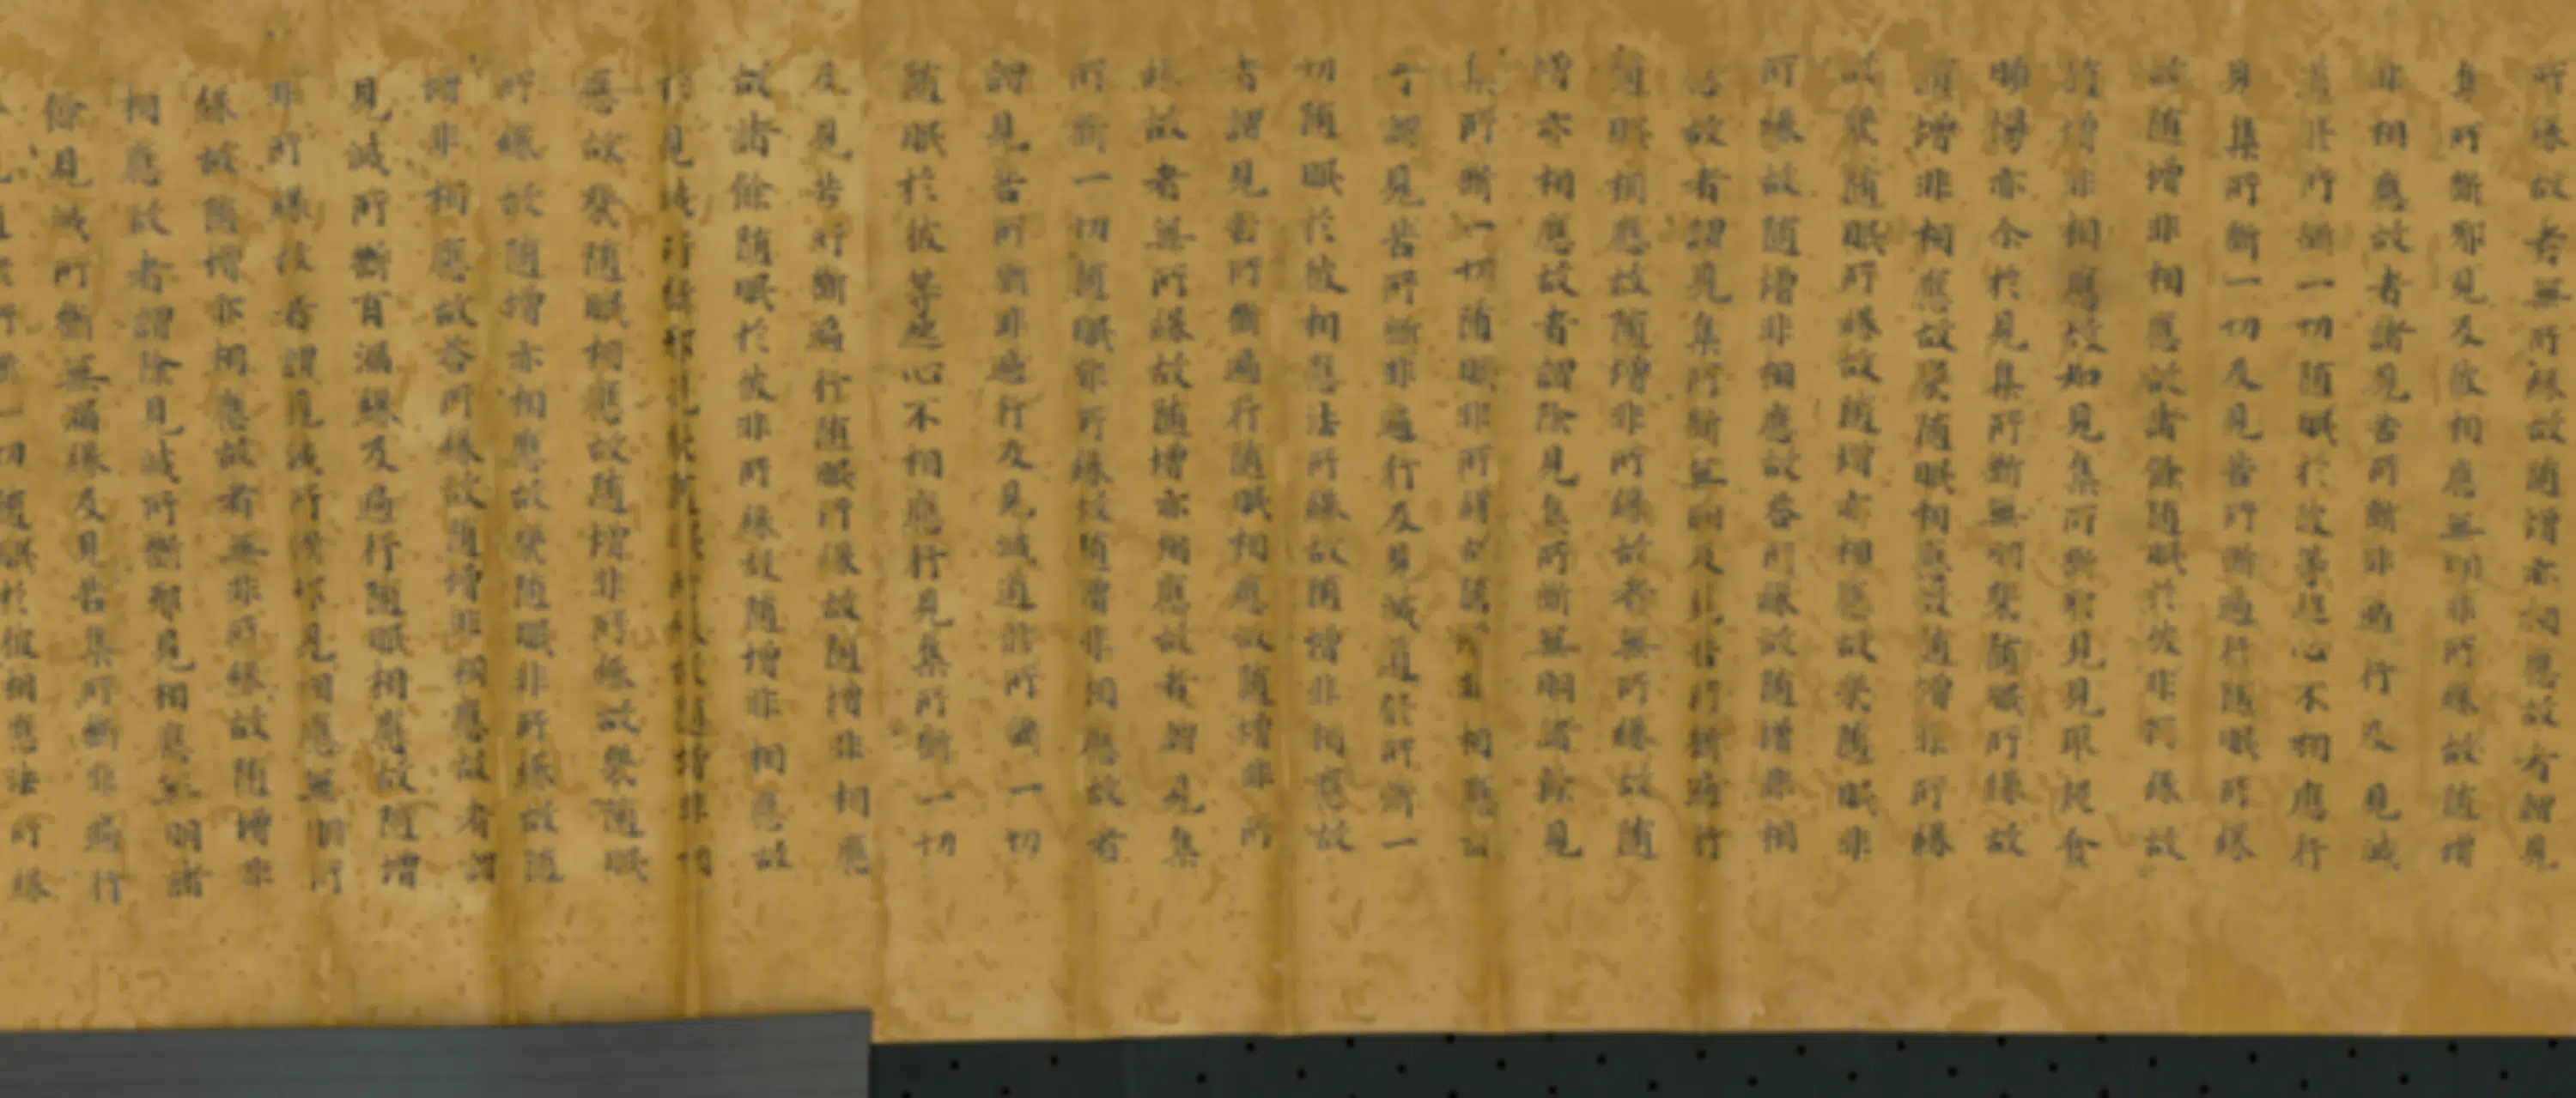 所緣故者無所緣故隨增亦相應故者謂見
集所斷邪見及彼相應無明非所緣故隨增
非相應故者諸見苦所斷非遍行及見滅
道所斷一切隨眠於彼等起心不相應行
見集所斷一切及見苦所斷遍行隨眠所緣
故隨增非相應故諸餘隨眠於彼非所緣故
隨增非相應故如見集所斷邪見見取疑貪
瞋慢亦尒於見集所斷無明眾隨眠所緣故
隨增非相應故眾隨眠相應故隨增非所緣
故眾隨眠所緣故隨增亦相應故眾隨眠非
所緣故隨增非相應故答所緣故隨增非相
應故者謂見集所斷無明及見苦所斷遍行
隨眠相應故隨增非所緣故者無所緣故隨
增亦相應故者謂除見集所斷無明諸餘見
集所斷一切隨眠非所緣故隨增非相應故
者謂見苦所斷非遍行及見滅道所斷一
切隨眠於彼相應法所緣故隨增非相應故
者謂見苦所斷遍行隨眠相應故隨增非所
緣故者無所緣故隨增亦相應故者謂見集
所斷一切隨眠非所緣故隨增非相應故者
謂見苦所斷非遍行及見滅道所斷一切
隨眠於彼等起心不相應行見集所斷一切
及見苦所斷遍行隨眠所緣故隨增非相應
故諸餘隨眠於彼非所緣故隨增非相應故
於見滅所斷邪見眾隨眠所緣故隨增非相
應故眾隨眠相應故隨增非所緣故眾隨眠
所緣故隨增亦相應故眾隨眠非所緣故隨
增非相應故答所緣故隨增非相應故者謂
見滅所斷有漏緣及遍行隨眠相應故隨增
非所緣故者謂見滅所斷邪見相應無明所
緣故隨增亦相應故者無非所緣故隨增非
相應故者謂除見滅所斷邪見相應無明諸
餘見滅所斷無漏緣及見苦集所斷非遍行
見道所斷一切隨眠於彼相應法所緣